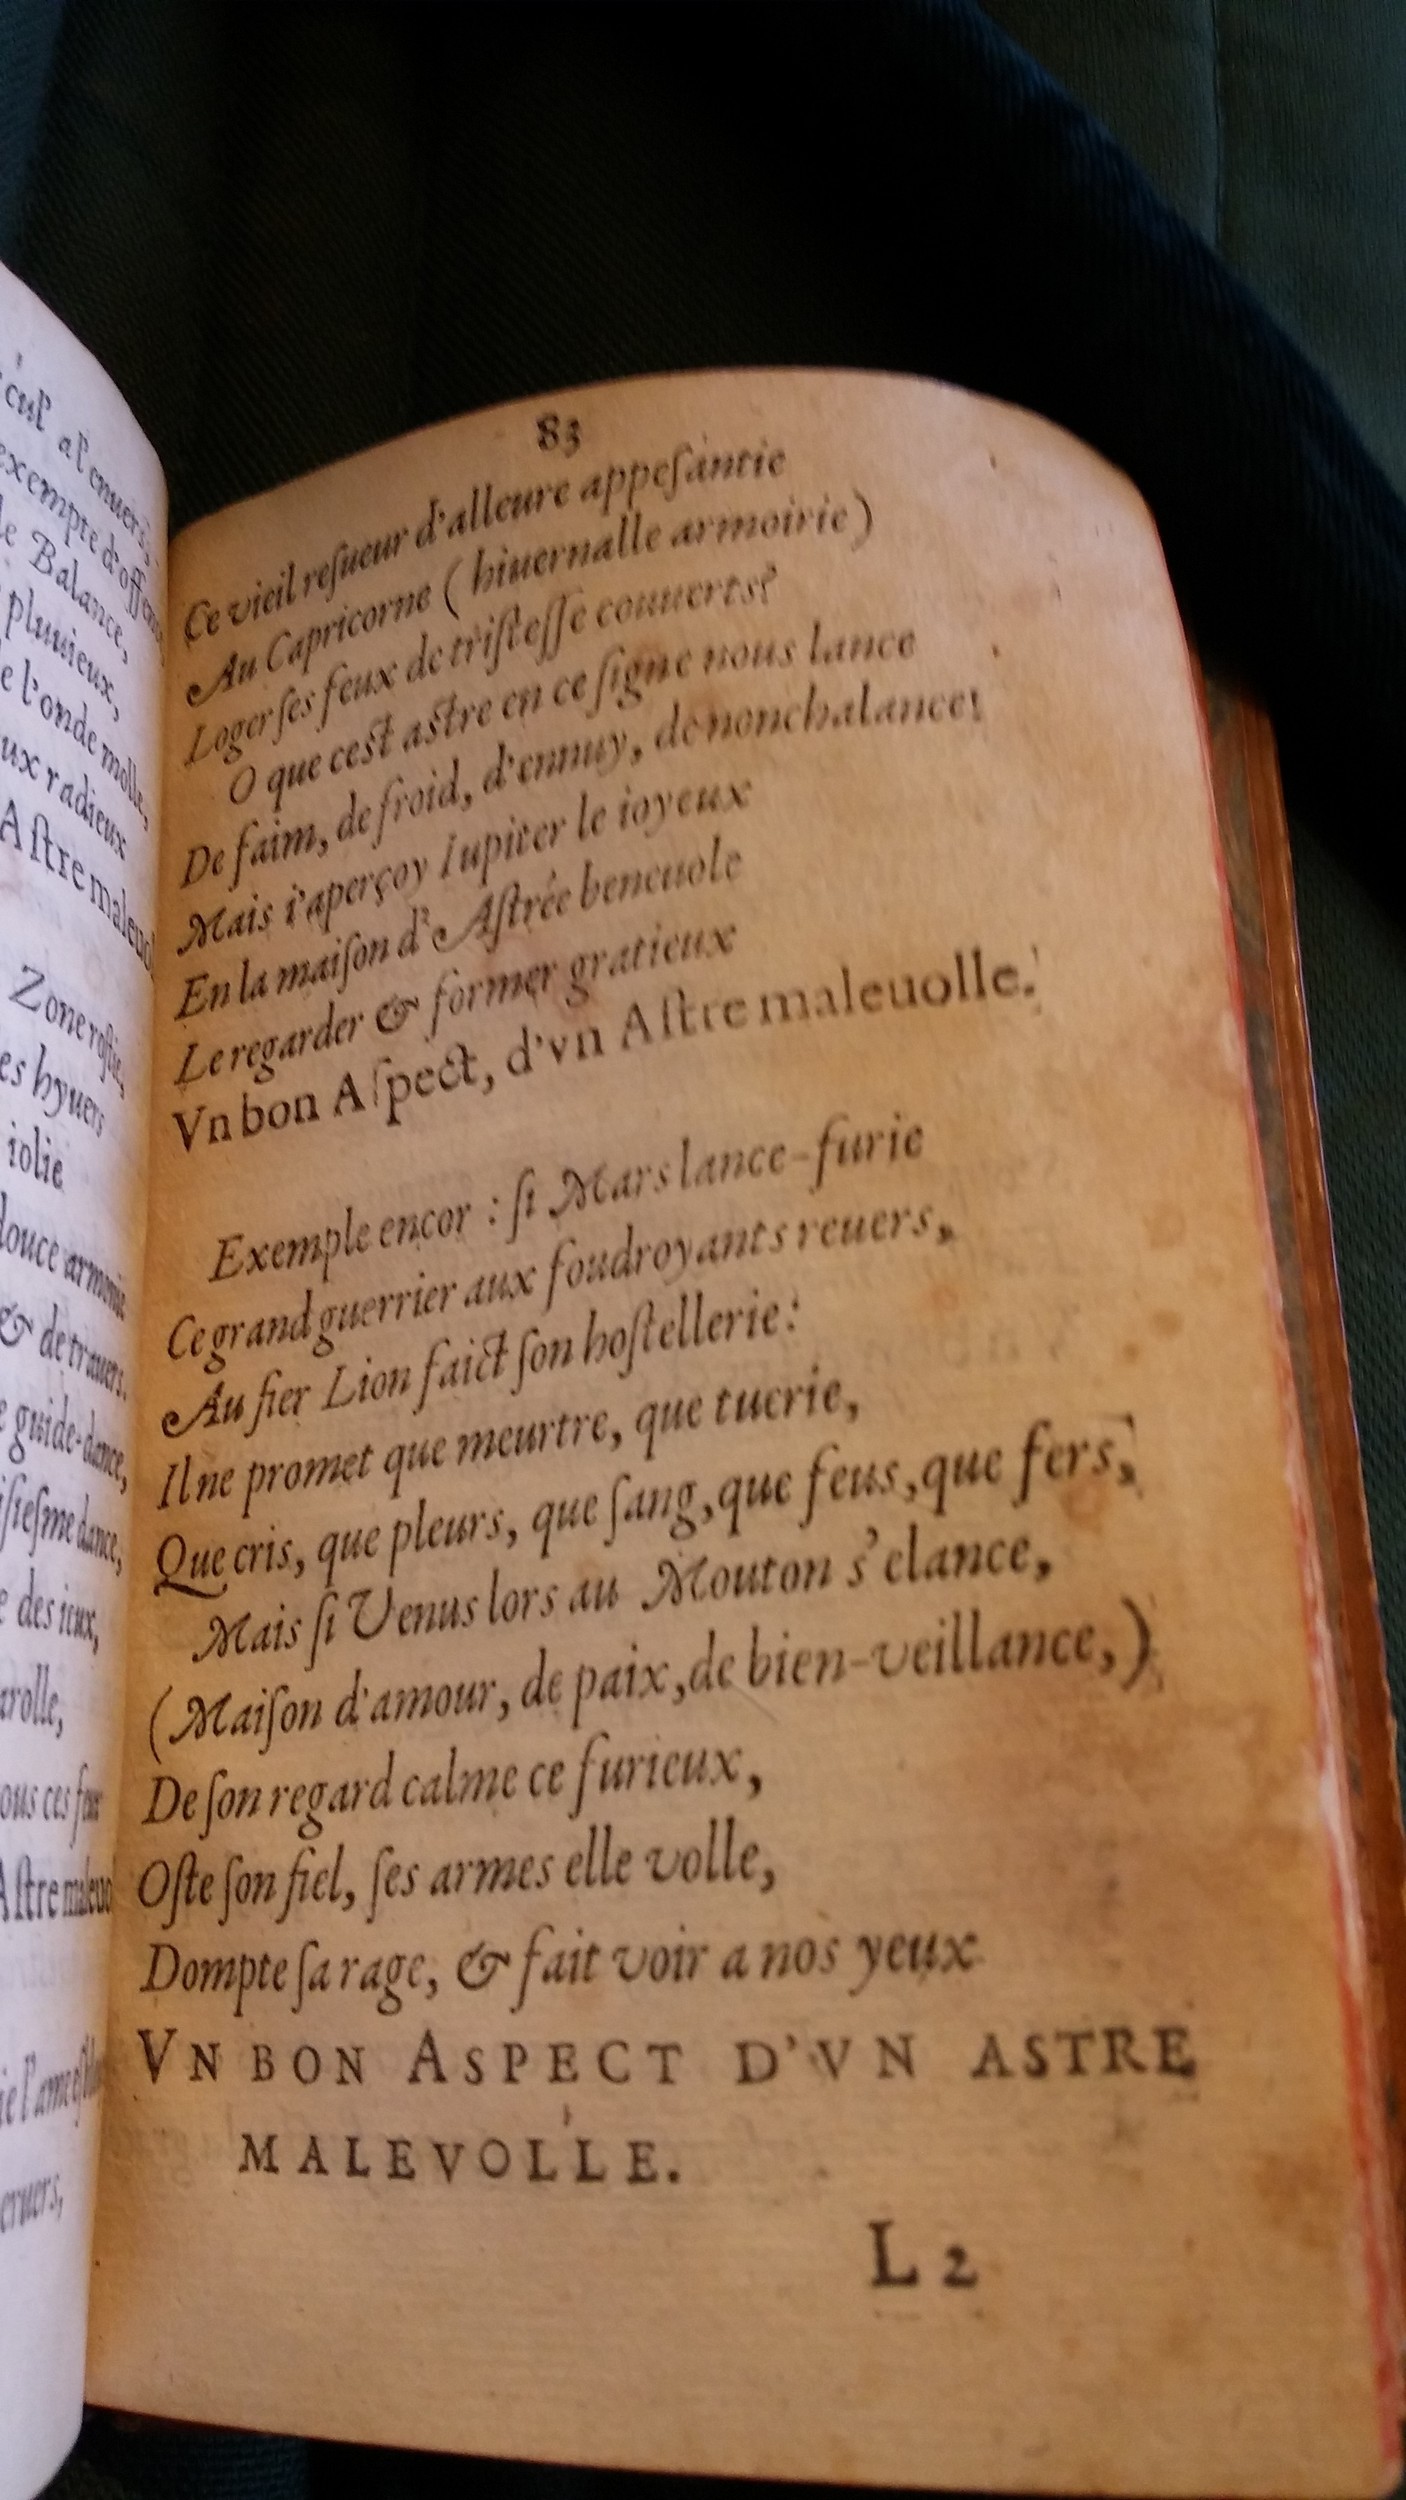 cul' a l'enuers;
exempte d'offen
le Balance,
pluuieux,
l'onde molle,
ux radieux
Astre maleuol
Zone rostie,
es hyuers
iolie
douce armonie
& de trauers.
guide-dance,
isiesme dance,
des ieux,
arolle,
ous ces feux
Astre maleuol
eruers,
83
Ce vieil resueur d'alleure appesantie
Au Capricorne ( hiuernalle armoirie )
Loger ses feux de tristesse couuerts?
O que cest astre en ce signe nous lance
De faim, de froid, d'ennuy, de nonchalance!
Mais i'aperçoy Iupiter le ioyeux
En la maison d'Astrée beneuole
Le regarder & former gratieux
Vn bon Aspect, d'vn Astre maleuolle.
Exemple encor : si Mars lance-furie
Ce grand guerrier aux foudroyants reuers,
Au fier Lion faict son hostellerie:
Il ne promet que meurtre, que tuerie,
Que cris, que pleurs, que sang, que feus, que fers,
Mais si Venus lors au Mouton s'elance,
(Maison d'amour, de paix, de bien-veillance,)
De son regard calme ce furieux,
Oste son fiel, ses armes elle volle,
Dompte sa rage, & fait voir a nos yeux
VN BON ASPECT D'VN ASTRE
MALEVOLLE.
L 2